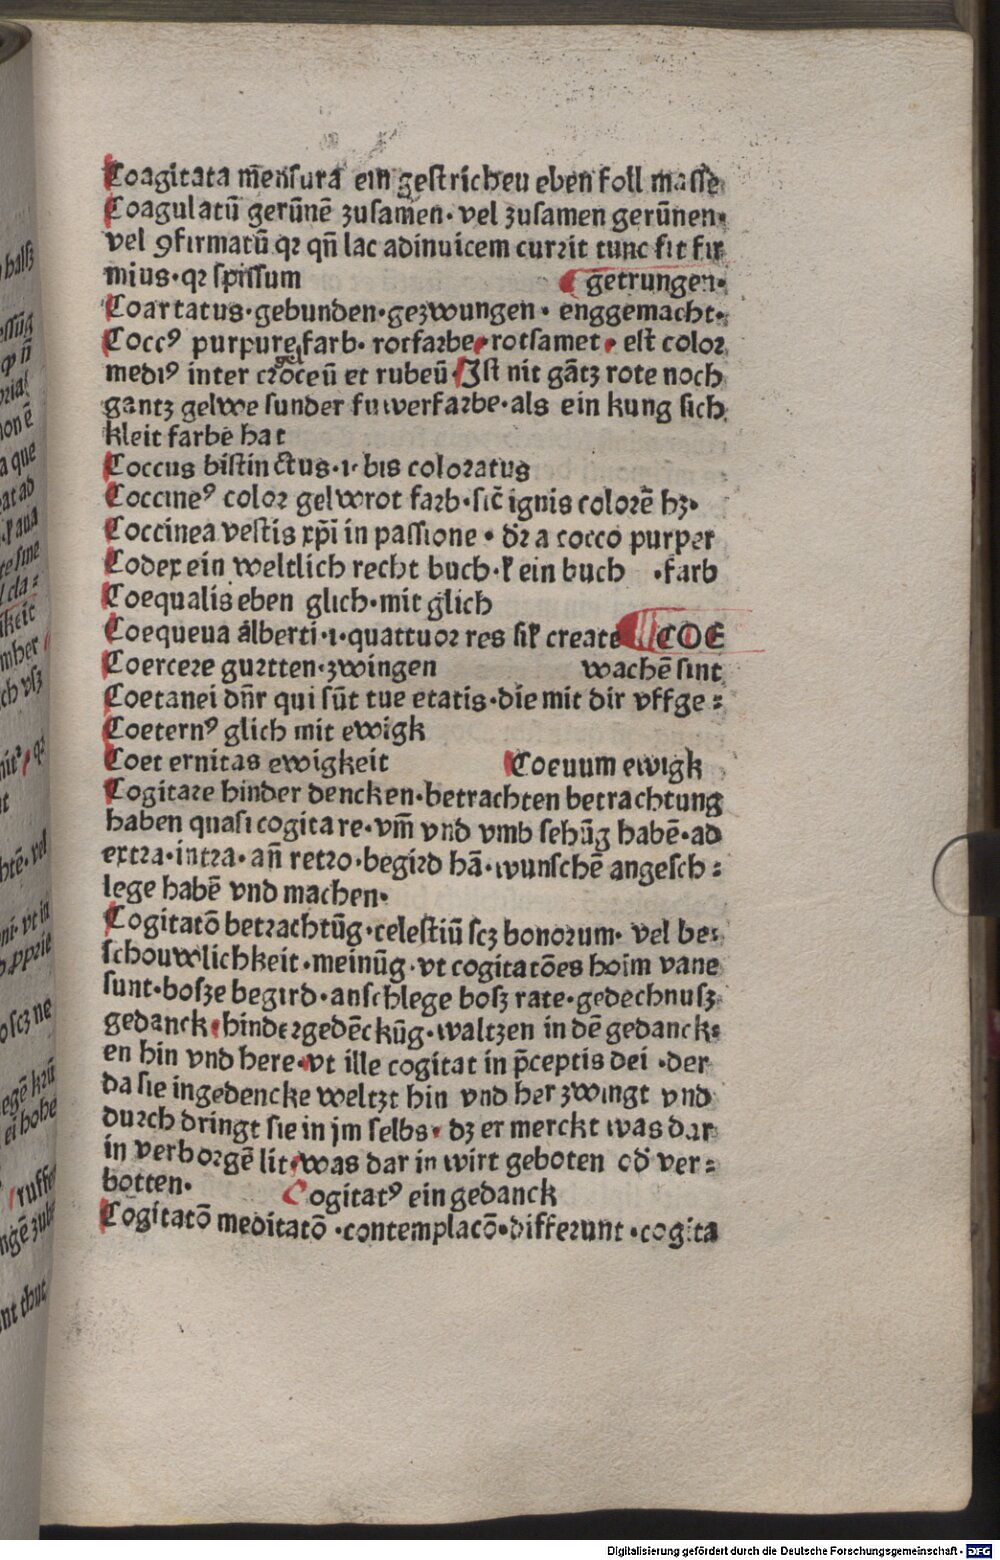 Coagitata mēsura ein gestrichen eben foll masse
Coagulatū gerūnē zusamen· vel zusamen gerūnen·
vel ꝯfirmatū qꝛ qn̄ lac adinuicem currit tunc fit fir
mius·qꝛ spissum getrungen·
Coartatus·gebunden·gezwungen· enggemacht·
Coccꝰ purpure farb· rotfarbe·rotsamet· est coloꝛ
mediꝰ inter croceū et rubeū Ist nit gātz rote noch
gantz gelwe sunder fuwerfarbe·als ein kung sich
kleit farbe hat
Coccus bistinctus·i·bis coloꝛatus
Coccineꝰ coloꝛ gelwrot farb·sic̄ ignis coloꝛē hꝫ·
Coccinea vestis xp̄i in passione· dꝛ a cocco purper
Codex ein weltlich recht buch·ł ein buch ·farb
Coequalis eben glich·mit glich
Coequeua alberti·i·quattuoꝛ res sił create COE
Coercere gurtten·zwingen wachē sint
Coetanei dn̄r qui sūt tue etatis·die mit dir vffge⸗
Coeternꝰ glich mit ewigk
Coet ernitas ewigkeit Coeuum ewigk
Cogitare hinder dencken·betrachten betrachtung
haben quasi cogitare·vm̄ vnd vmb sehūg habē·ad
extra·intra·an̄ retro·begird hā·wunschē angesch⸗
lege habē vnd machen·
Cogitatō betrachtūg·celestiū scꝫ bonoꝛum· vel be⸗
schouwlichkeit·meinūg·vt cogitatōes hoīm vane
sunt·bosze begird·anschlege bosz rate·gedechnusz
gedanck·hindergedēckūg·waltzen in dē gedanck⸗
en hin vnd here·vt ille cogitat in p̄ceptis dei ·der
da sie ingedencke weltzt hin vnd her zwingt vnd
durch dringt sie in jm selbs· dꝫ er merckt was dar
in verboꝛgē lit·was dar in wirt geboten od̄ ver⸗
botten· Cogitatꝰ ein gedanck
Cogitatō meditatō ·contemplacō·differunt ·cogita
Digitalisierung gefördert durch die Deutsche Forschungsgemeinschaft - DFG